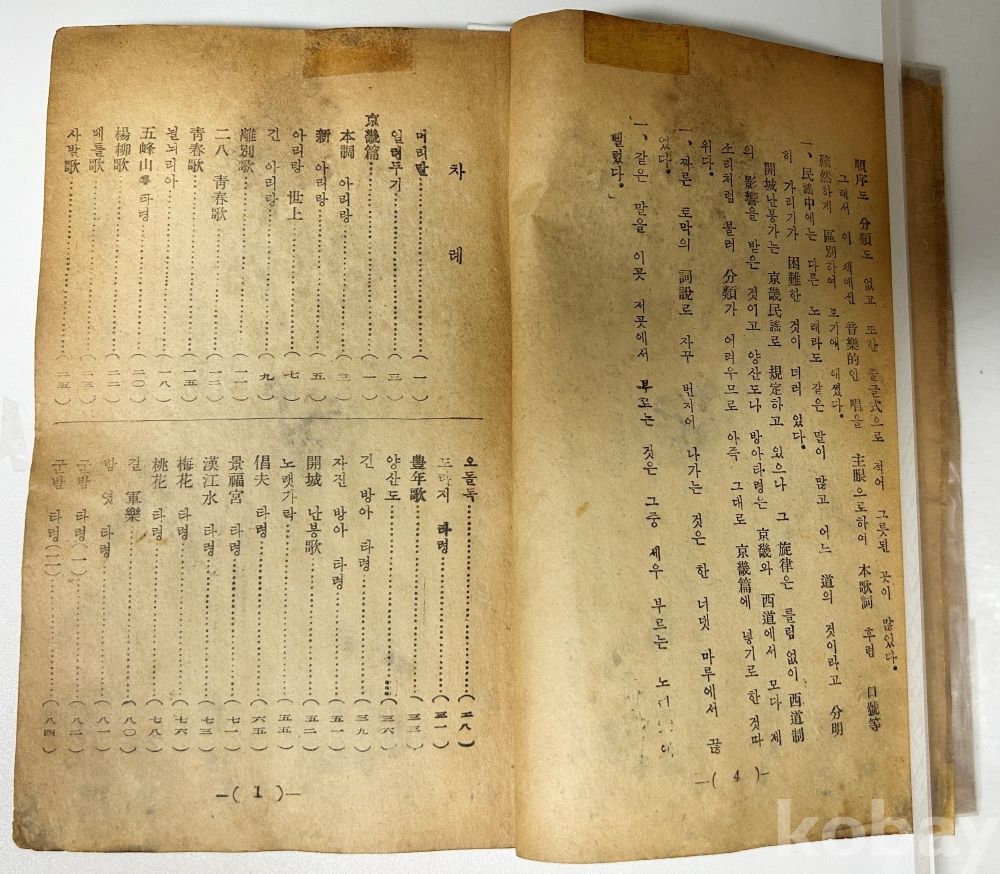 順序도 分類도 없고 또한 줄글式으로 적어 그릇된 곳이 많었다.
그래서 이 책에선 音樂的인 唱을 主眼으로하여 本歌詞 후렴 口號等
確然하게 區別하여 보기에 애썼다.
一、民謠中에는 다른 노래라도 같은 말이 많고 어느 道의 것이라고 分明
히 가리기가 困難한 것이 더러 있다.
開城난봉가는 京畿民謠로 規定하고 있으나 그 旋律은 틀림 없이 西道制
의 影響을 받은 것이고 양산도나 방아타령은 京畿와 西道에서 모다 제
소리처럼 불러 分類가 어려우므로 아즉 그대로 京畿篇에 넣기로 한 것따
위다.
一、짜른 토막의 詞說로 자꾸 번지어 나가는 것은 한 너덧 마루에서 끊
었다.
一、같은 말을 이곳 저곳에서 부르는 것은 그중 제우 부르는
삘렀다.
—( 4 )—
차 례
머리말……(一)
일러두기……(三)
京畿篇……(一)
本調 아리랑……(三)
新 아리랑……(五)
아리랑 世上……(七)
긴 아리랑……(九)
離別歌……(一一)
二八 靑春歌……(一二)
靑春歌……(一五)
닐늬리아……(一八)
五峰山 타령……(二〇)
楊柳歌……(二二)
베틀歌……(二三)
사발歌……(二五)
오돌독……(二八)
도라지 타령……(三一)
豊年歌……(三三)
양산도……(三六)
긴 방아 타령……(三九)
자진 방아 타령……(五一)
開城 난봉歌……(五二)
노랫가락……(五五)
倡夫 타령……(六五)
景福宮 타령……(七一)
漢江水 타령……(七三)
梅花 타령……(七六)
桃花 타령……(七八)
길 軍樂……(八〇)
밤 엿 타령……(八一)
군밤 타령(一)……(八二)
군밤 타령(二)……(八四)
—( 1 )—
kobay